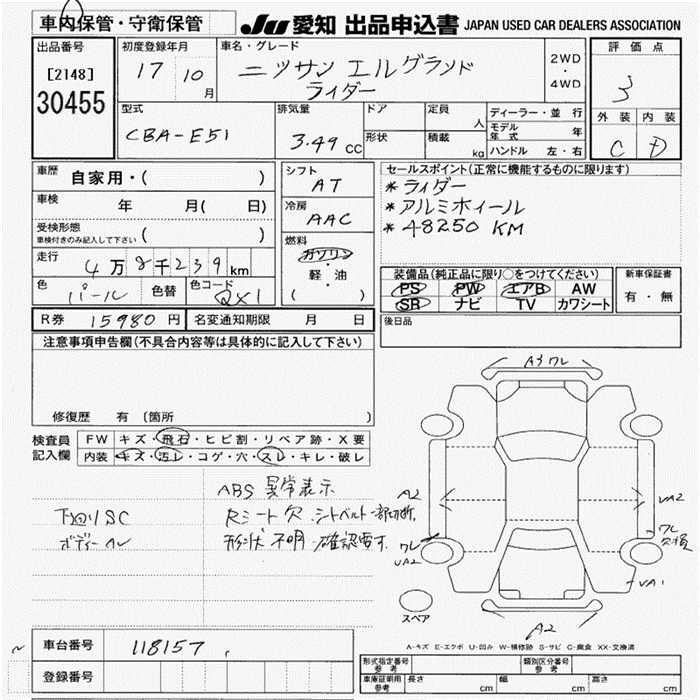 車内保管・守衛保管
JU 愛知 出品申込書 JAPAN USED CAR DEALERS ASSOCIATION
出品番号
[2148]
30455
初度登録年月
17 10 月
車名・グレード
ニッサン エルグランド
ライダー
2WD
・
4WD
評価点
3
外装 内装
C D
型式
CBA-E51
排気量
3.49 CC
ドア
形状
定員 人
積載 kg
ディーラー・並行
モデル年式 年
ハンドル 左・右
車歴 自家用・( )
車検 年 月( 日)
受検形態
車検付きのみ記入して下さい ( )
走行
4万8千239km
色 パール 色替 色コード QX1
シフト
AT
冷房
AAC
燃料
ガソリン
・
軽・油
( )
セールスポイント(正常に機能するものに限ります)
*ライダー
*アルミホイール
*48250 KM
装備品(純正品に限り○をつけてください)
PS PW エアB AW
SR ナビ TV カワシート
新車保証書
有・無
後日品
R券 15980 円 名変通知期限 月 日
注意事項申告欄(不具合内容等は具体的に記入して下さい)
修復歴 有 〔箇所 〕
検査員
記入欄
FW キズ・飛石・ヒビ割・リペア跡・X要
内装 キズ・汚レ・コゲ・穴・スレ・キレ・破レ
ABS 異常表示
下回りSC
Rシート欠 シートベルト一部切断
形状不明 確認要す
A3 ワレ
A2
UA2
ワレ
欠損
ワレ
UA2
UA1
A2
スペア
A-キズ E-エクボ U-凹み W-補修跡 S-サビ C-腐食 XX-交換済
車台番号 118157
登録番号
形式指定番号
参考
類別区分番号
参考
車庫証明用
参考
長さ cm 幅 cm 高さ cm